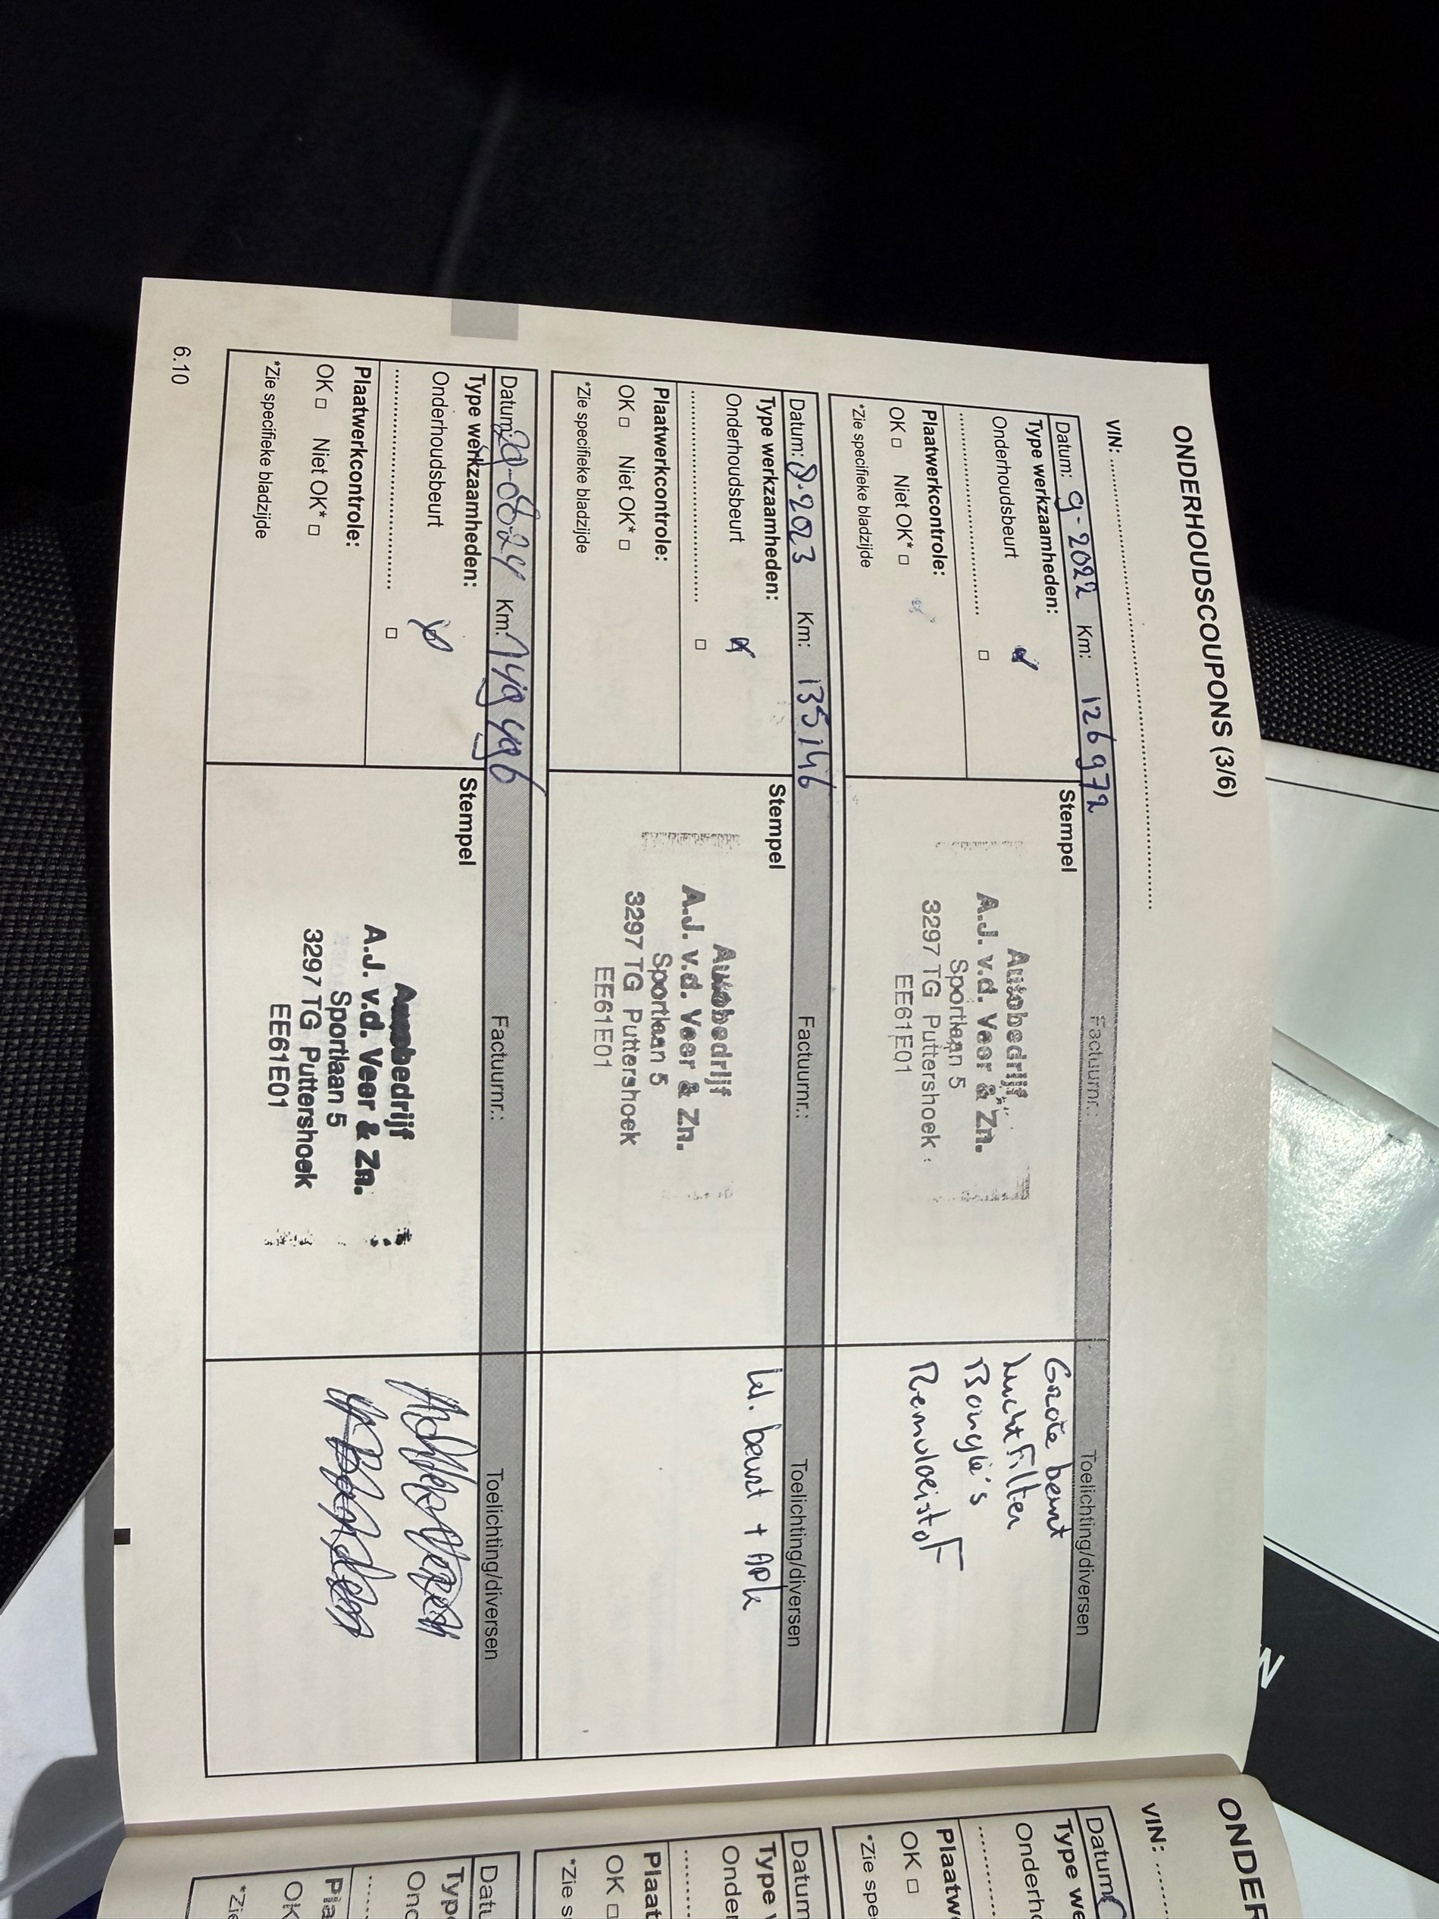 ONDERHOUDSCOUPONS (3/6)
VIN: ........................................................
Datum: 9-2022 Km: 126972 Factuurnr.: Toelichting/diversen
Type werkzaamheden:
Onderhoudsbeurt
Plaatwerkcontrole:
OK □ Niet OK* □
*Zie specifieke bladzijde
Stempel
Autobedrijf
A.J. v.d. Veer & Zn.
Sportlaan 5
3297 TG Puttershoek
EE61E01
Grote beurt
Luchtfilter
Bougie's
Remvloeistof
Datum: 8-2023 Km: 135146 Factuurnr.: Toelichting/diversen
Type werkzaamheden:
Onderhoudsbeurt
Plaatwerkcontrole:
OK □ Niet OK* □
*Zie specifieke bladzijde
Stempel
Autobedrijf
A.J. v.d. Veer & Zn.
Sportlaan 5
3297 TG Puttershoek
EE61E01
kl. beurt + APK
Datum: 20-08-24 Km: 149496 Factuurnr.: Toelichting/diversen
Type werkzaamheden:
Onderhoudsbeurt
Plaatwerkcontrole:
OK □ Niet OK* □
*Zie specifieke bladzijde
Stempel
Autobedrijf
A.J. v.d. Veer & Zn.
Sportlaan 5
3297 TG Puttershoek
EE61E01
6.10
ONDER
VIN: ......
Datum
Type we
Onderh
Plaatw
OK □
*Zie spe
Datum
Type
Onder
Plaat
OK □
*Zie s
Datu
Typ
Ond
Pla
OK
*Zie